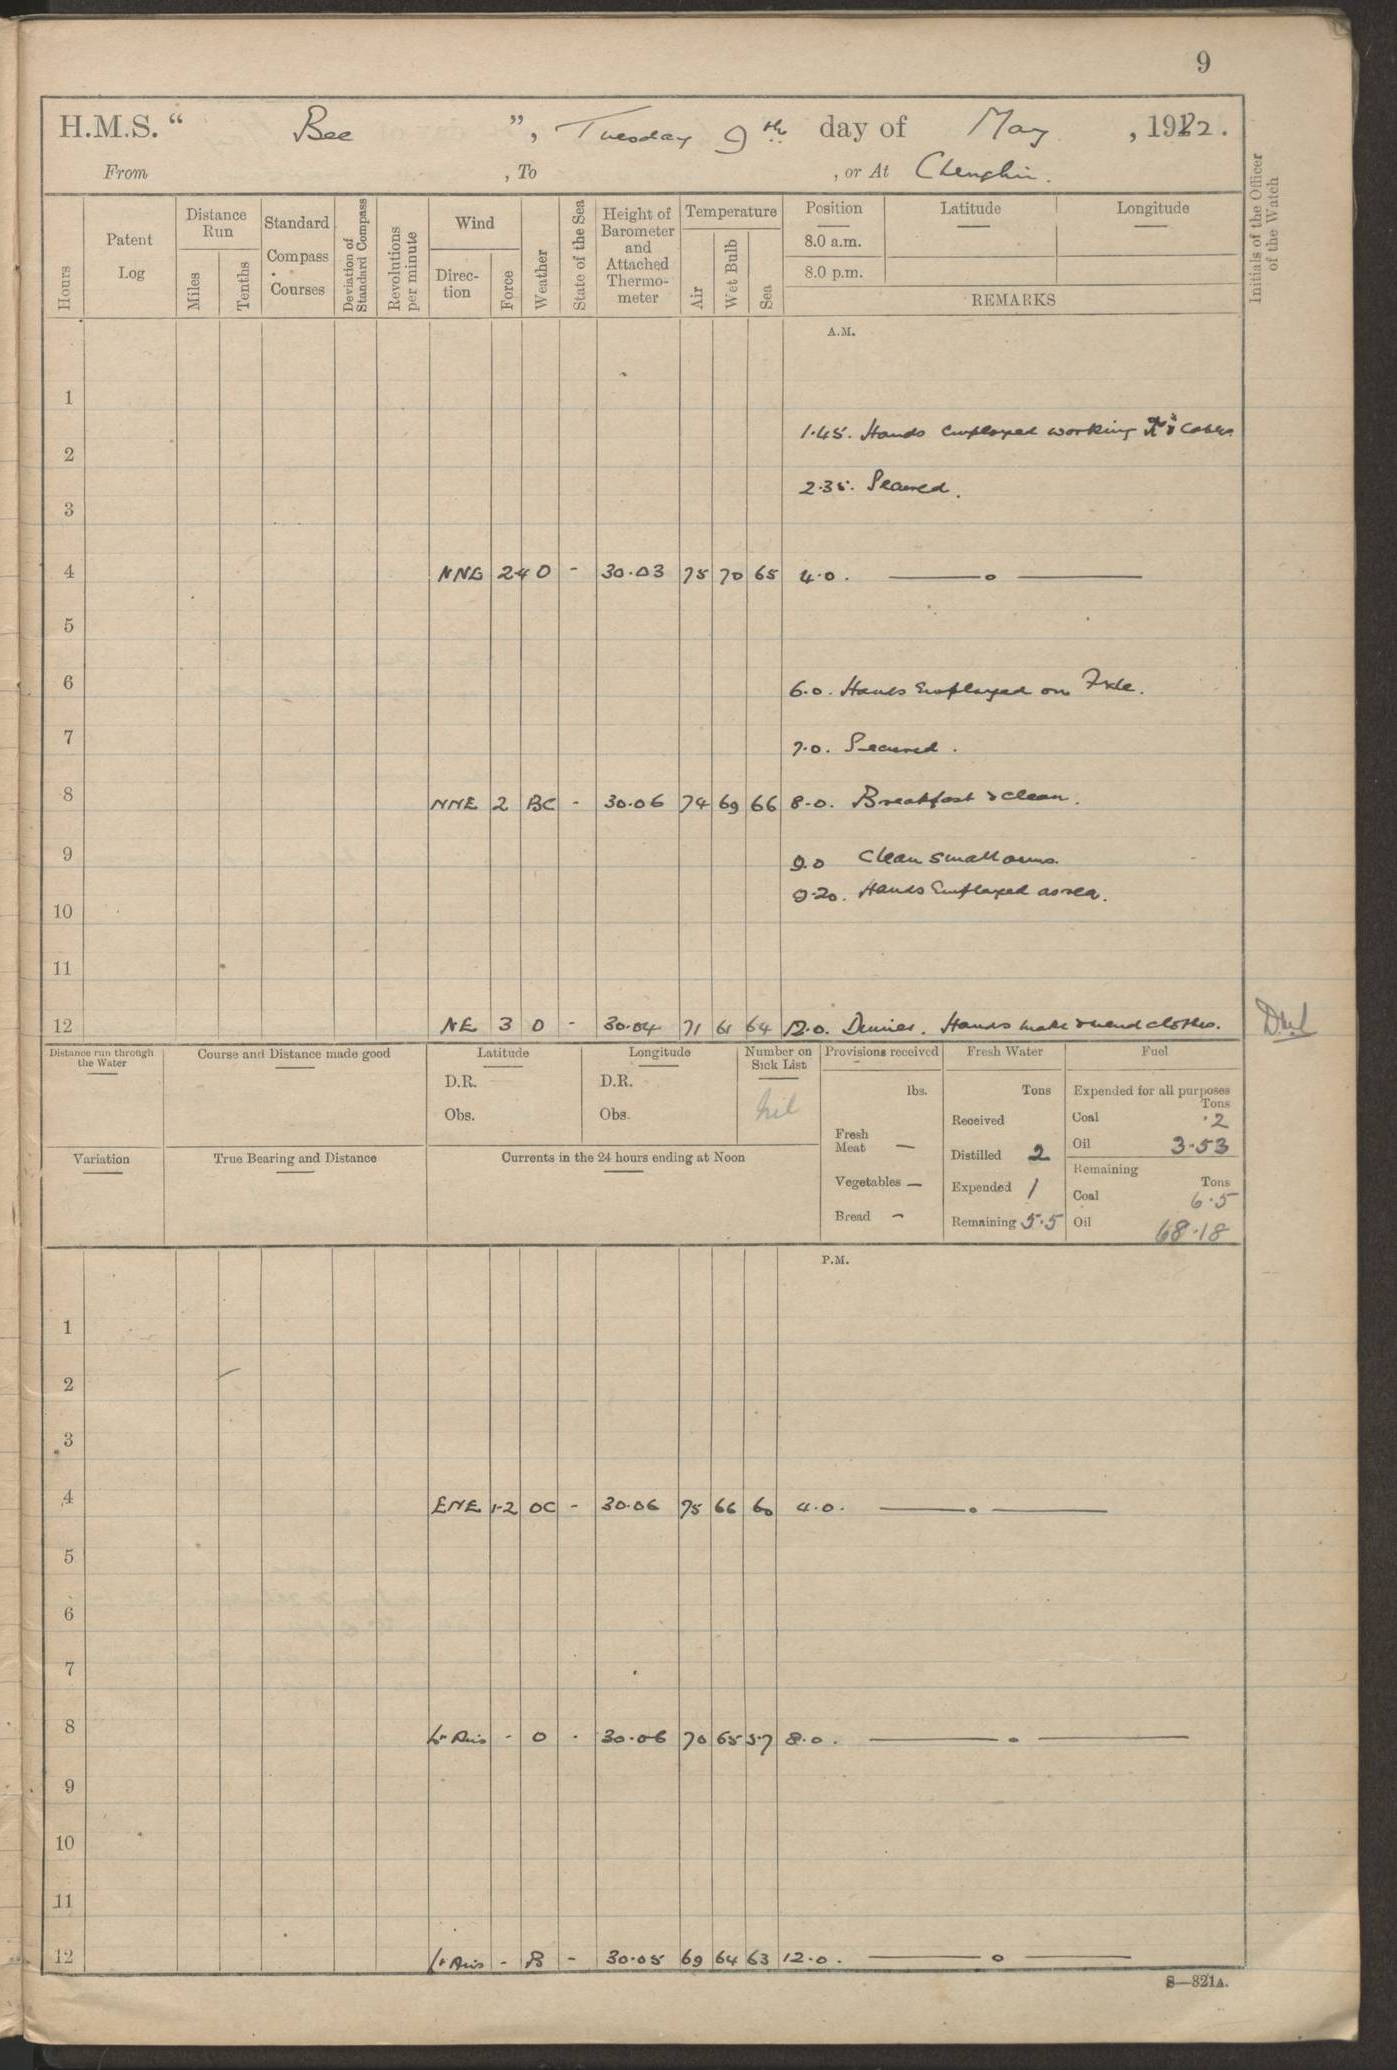 9
H.M.S. " Bee ", Tuesday 9th day of May, 1922.
From , To , or At Chenglin.
Hours
Patent Log
Distance Run
Miles
Tenths
Standard Compass Courses
Deviation of Standard Compass
Revolutions per minute
Wind
Direc-tion
Force
Weather
State of the Sea
Height of Barometer and Attached Thermo-meter
Temperature
Air
Wet Bulb
Sea
Position
8.0 a.m.
8.0 p.m.
Latitude
Longitude
REMARKS
Initials of the Officer of the Watch
A.M.
1
1.45. Hands Employed working Cables
2
2.35. Secured.
3
4 NNE 2-4 O - 30.03 75 70 65 4.0. —o—
5
6 6.0. Hands Employed on
7 7.0. Secured.
8 NNE 2 BC - 30.06 74 69 66 8.0. Breakfast & clean.
9 9.0 Clean small arms.
9.20. Hands Employed as req.
10
11
12 NE 3 O - 30.04 71 61 64 12.0. Dinner. Hands make & mend clothes.
Distance run through the Water
Course and Distance made good
Latitude
D.R.
Obs.
Longitude
D.R.
Obs.
Number on Sick List
Nil
Provisions received
lbs.
Fresh Meat —
Vegetables —
Bread -
Fresh Water
Tons
Received
Distilled 2
Expended 1
Remaining 5.5
Fuel
Expended for all purposes
Tons
Coal .2
Oil 3.53
Remaining
Tons
Coal 6.5
Oil 68.18
Variation
True Bearing and Distance
Currents in the 24 hours ending at Noon
P.M.
1
2
3
4 ENE 1-2 OC - 30.06 75 66 60 4.0. —o—
5
6
7
8 Lt Airs - O - 30.06 70 65 57 8.0. —o—
9
10
11
12 Lt Airs - B - 30.05 69 64 63 12.0. —o—
S—821A.